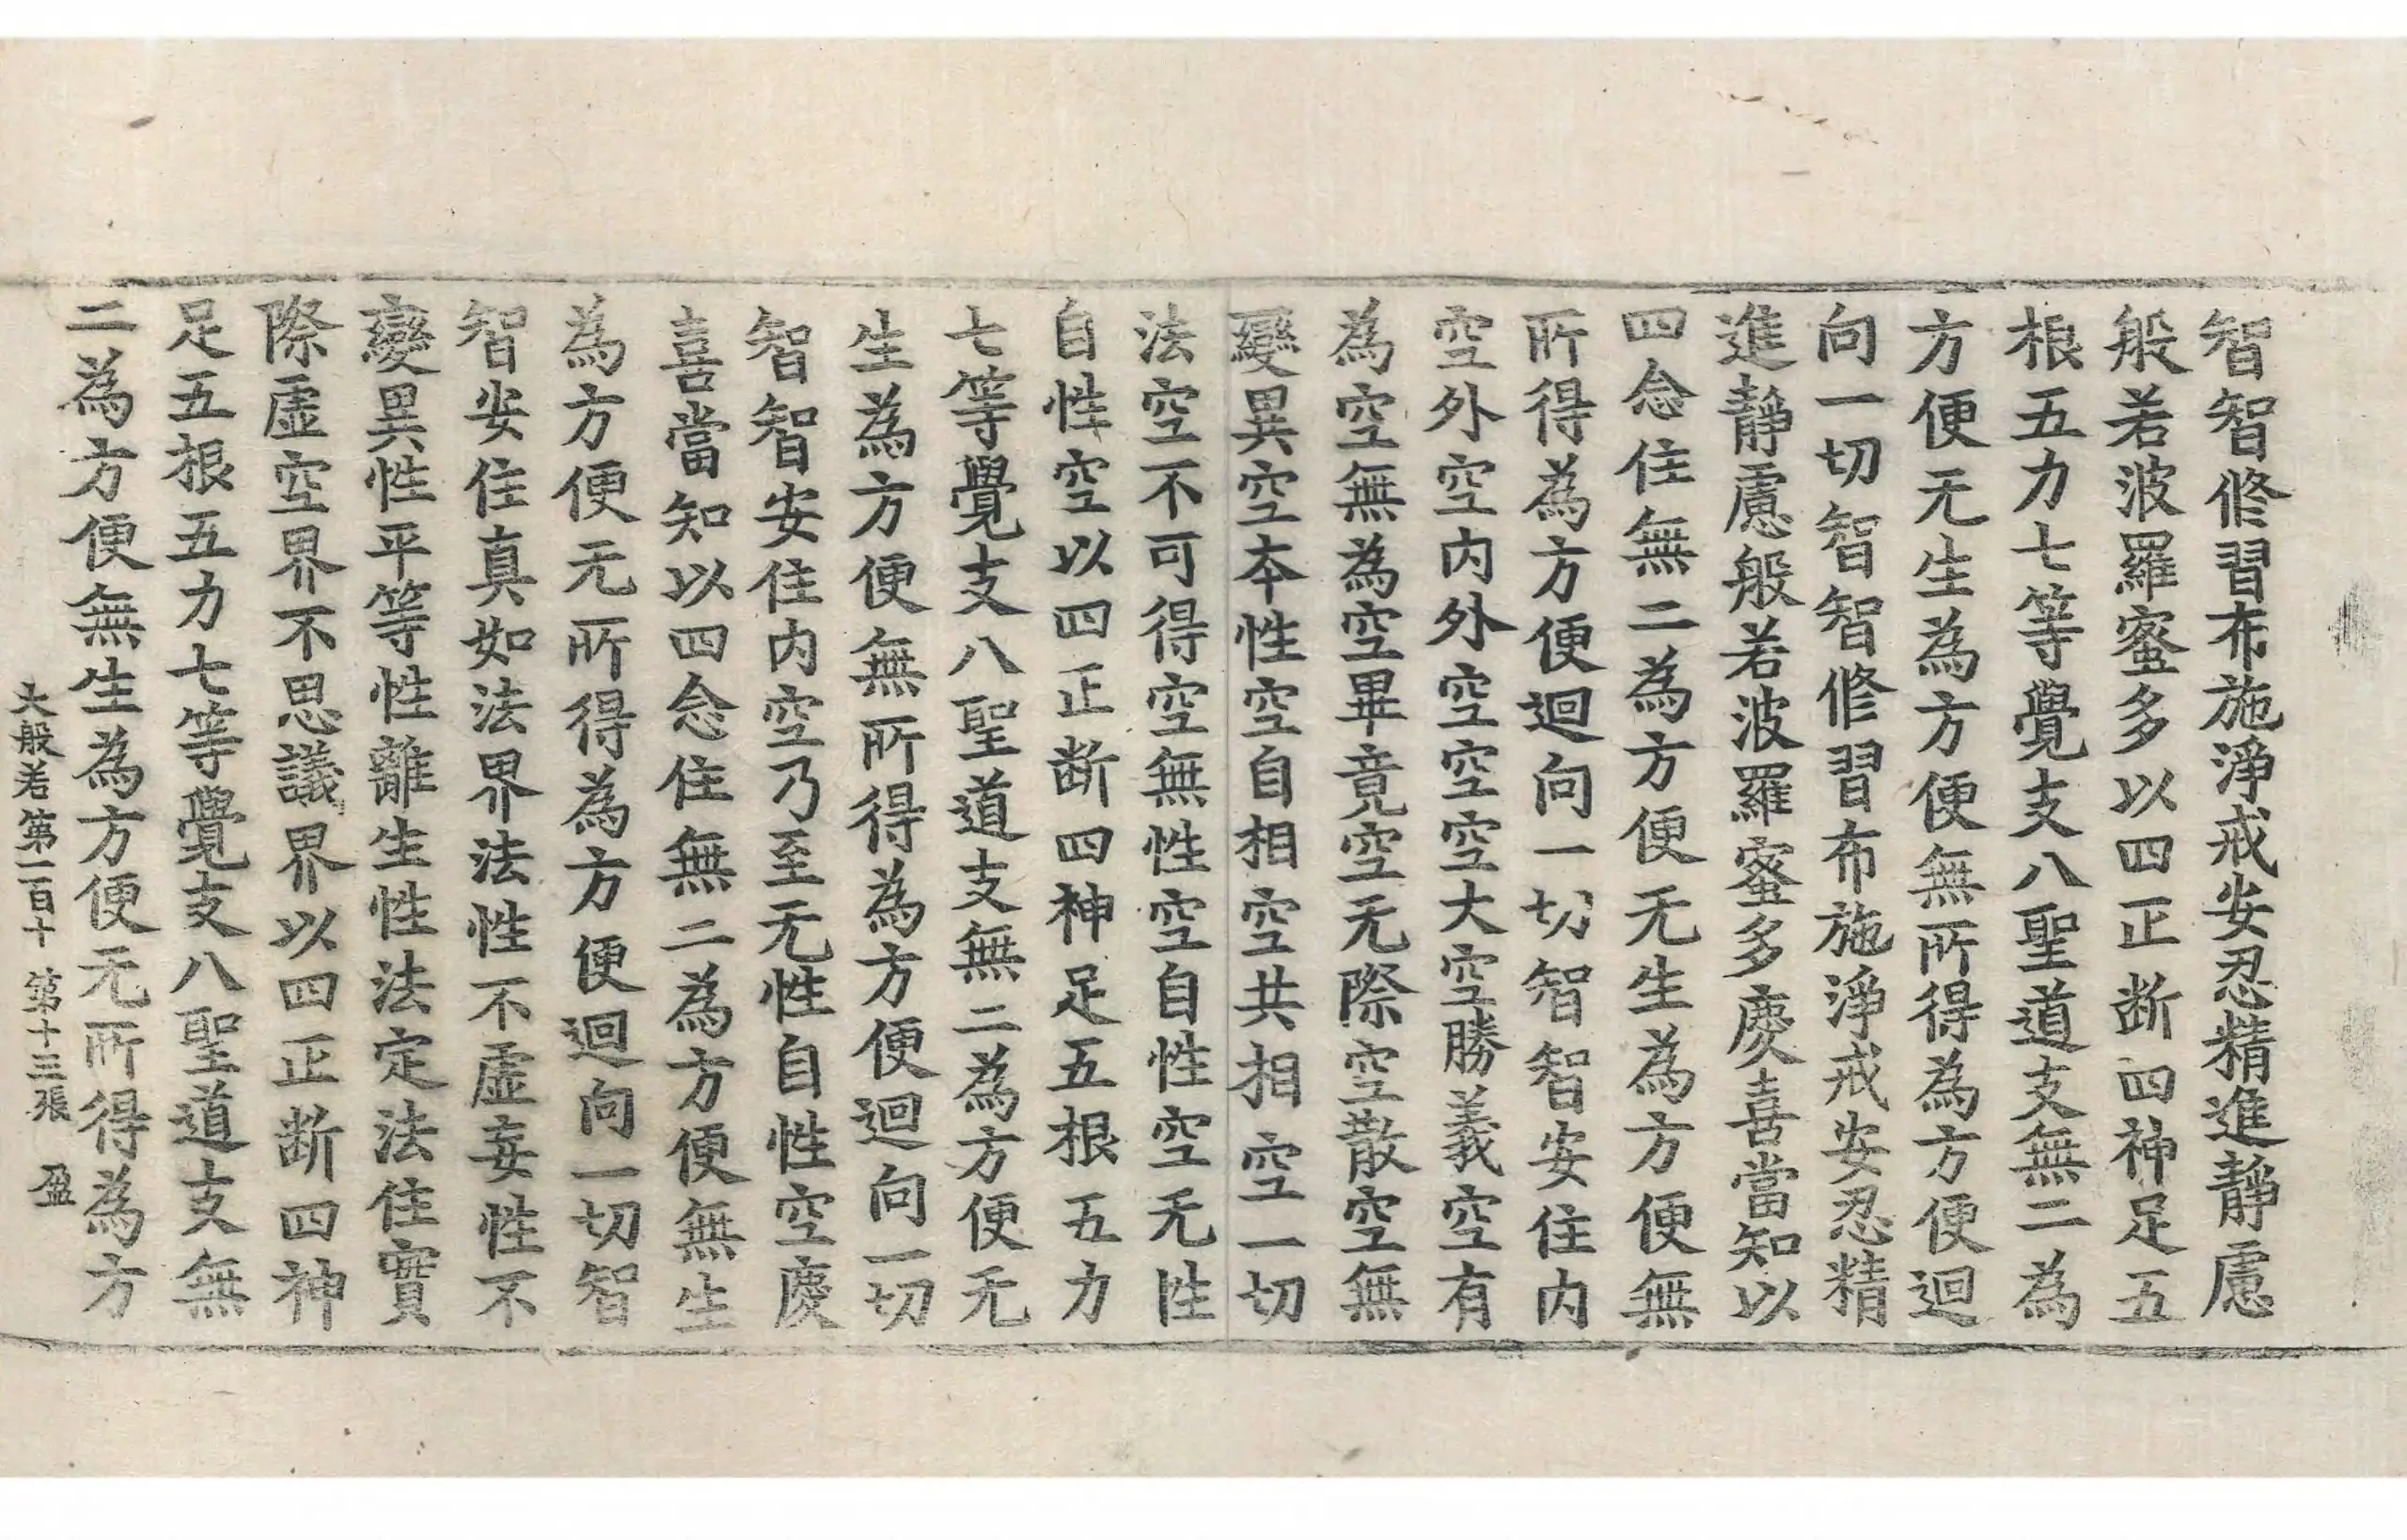 智智修習布施淨戒安忍精進靜慮
般若波羅蜜多以四正断四神足五
根五力七等覺支八聖道支無二為
方便无生為方便無所得為方便迴
向一切智智修習布施淨戒安忍精
進靜慮般若波羅蜜多慶喜當知以
四念住無二為方便无生為方便無
所得為方便迴向一切智智安住内
空外空内外空空空大空勝義空有
為空無為空畢竟空无際空散空無
變異空本性空自相空共相空一切
法空不可得空無性空自性空无性
自性空以四正断四神足五根五力
七等覺支八聖道支無二為方便无
生為方便無所得為方便迴向一切
智智安住内空乃至无性自性空慶
喜當知以四念住無二為方便無生
為方便无所得為方便迴向一切智
智安住真如法界法性不虛妄性不
變異性平等性離生性法定法住實
際虛空界不思議界以四正断四神
足五根五力七等覺支八聖道支無
二為方便無生為方便无所得為方
大般若第一百十 第十三張 盈